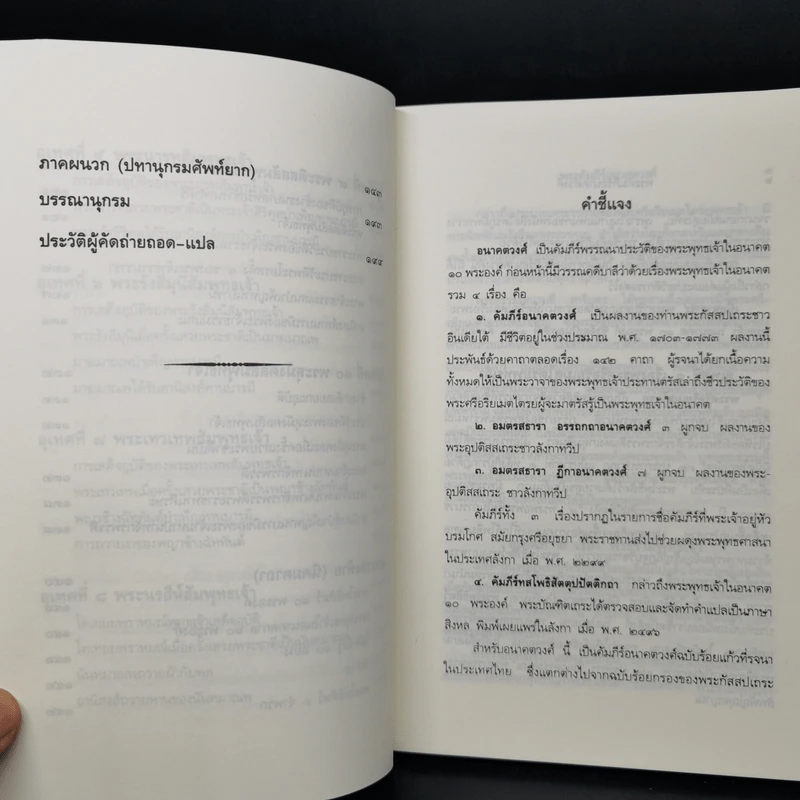 ภาคผนวก (ปทานุกรมศัพท์ยาก) ๑๔๓
บรรณานุกรม ๑๙๓
ประวัติผู้คัดถ่ายถอด-แปล ๑๙๙
คำชี้แจง
อนาคตวงศ์ เป็นคัมภีร์พรรณนาประวัติของพระพุทธเจ้าในอนาคต
๑๐ พระองค์ ก่อนหน้านี้มีวรรณคดีบาลีว่าด้วยเรื่องพระพุทธเจ้าในอนาคต
รวม ๔ เรื่อง คือ
๑. คัมภีร์อนาคตวงศ์ เป็นผลงานของท่านพระกัสสปเถระชาว
อินเดียใต้ มีชีวิตอยู่ในช่วงประมาณ พ.ศ. ๑๗๐๓-๑๗๗๓ ผลงานนี้
ประพันธ์ด้วยคาถาตลอดเรื่อง ๑๔๒ คาถา ผู้รจนาได้ยกเนื้อความ
ทั้งหมดให้เป็นพระวาจาของพระพุทธเจ้าประทานตรัสเล่าถึงชีวประวัติของ
พระศรีอริยเมตไตรยผู้จะมาตรัสรู้เป็นพระพุทธเจ้าในอนาคต
๒. อมตรสธารา อรรถกถาอนาคตวงศ์ ๓ ผูกจบ ผลงานของ
พระอุปติสสเถระชาวลังกาทวีป
๓. อมตรสธารา ฎีกาอนาคตวงศ์ ๗ ผูกจบ ผลงานของพระ-
อุปติสสเถระ ชาวลังกาทวีป
คัมภีร์ทั้ง ๓ เรื่องปรากฏในรายการชื่อคัมภีร์ที่พระเจ้าอยู่หัว
บรมโกศ สมัยกรุงศรีอยุธยา พระราชทานส่งไปช่วยผดุงพระพุทธศาสนา
ในประเทศลังกา เมื่อ พ.ศ. ๒๒๙๙
๔. คัมภีร์ทสโพธิสัตตุปปัตติกถา กล่าวถึงพระพุทธเจ้าในอนาคต
๑๐ พระองค์ พระบัณฑิตเถระได้ตรวจสอบและจัดทำคำแปลเป็นภาษา
สิงหล พิมพ์เผยแพร่ในลังกา เมื่อ พ.ศ. ๒๔๙๖
สำหรับอนาคตวงศ์ นี้ เป็นคัมภีร์อนาคตวงศ์ฉบับร้อยแก้วที่รจนา
ในประเทศไทย ซึ่งแตกต่างไปจากฉบับร้อยกรองของพระกัสสปเถระ